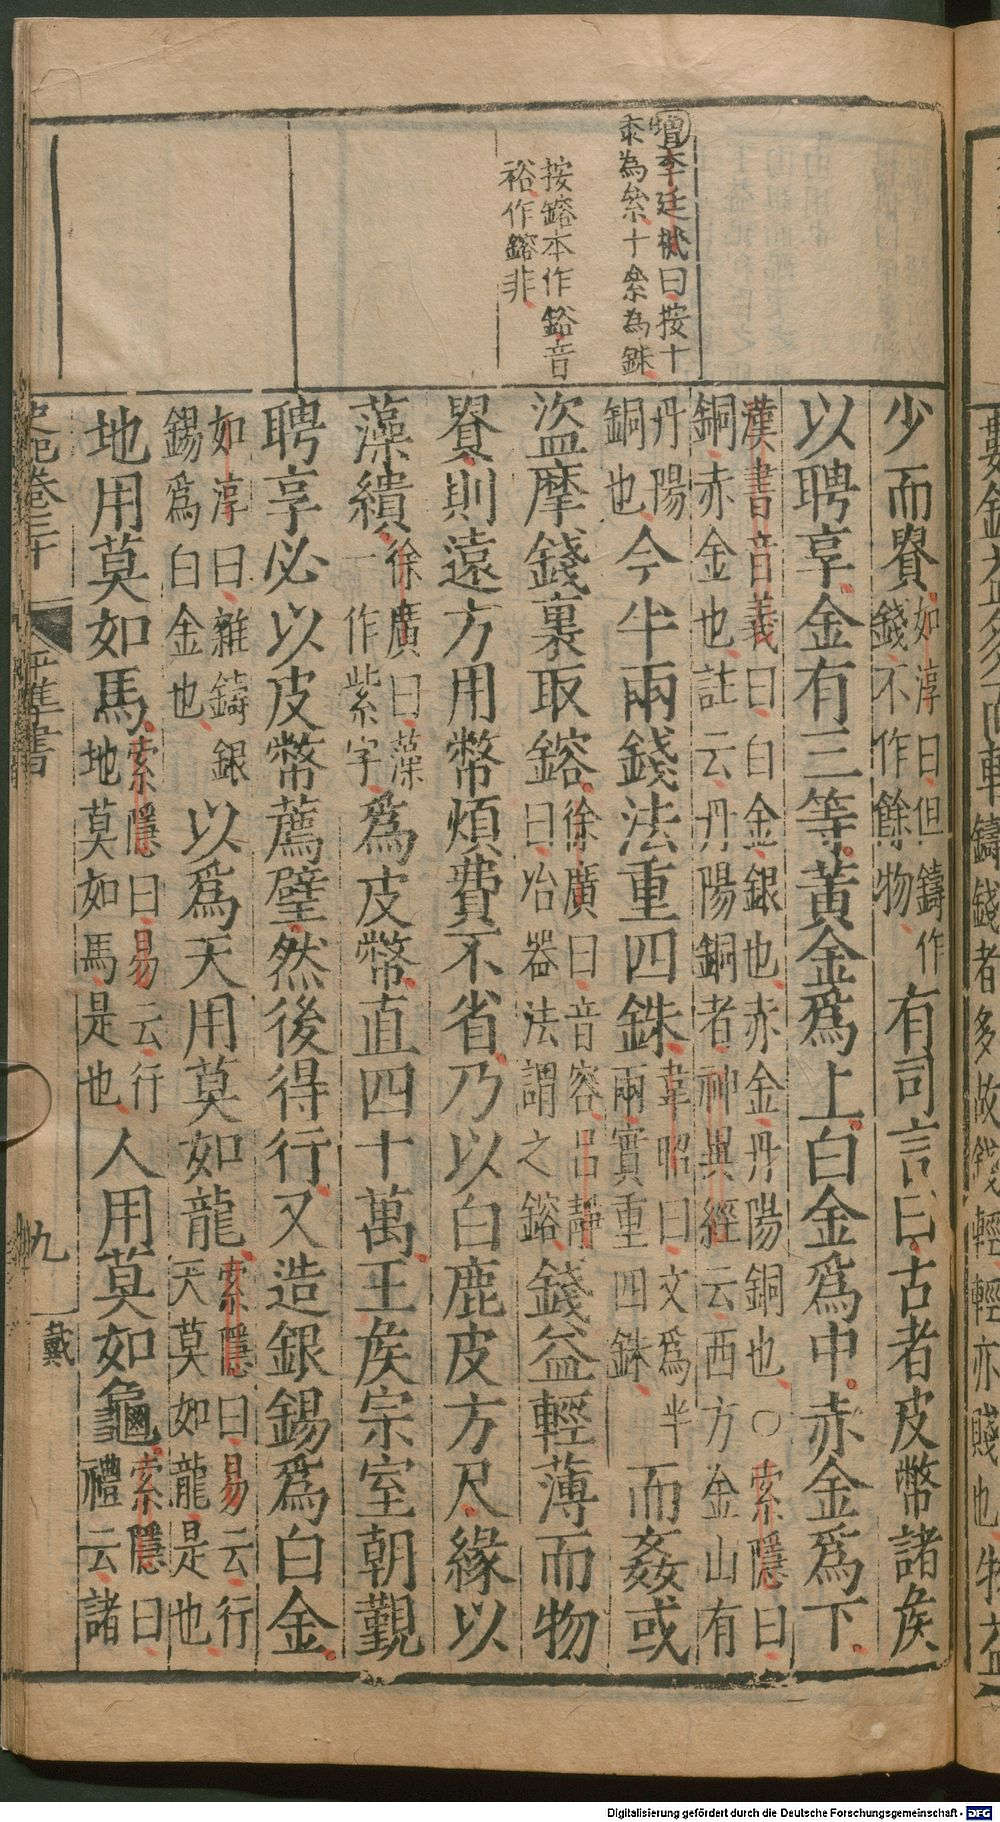 鑄錢者多故錢輕輕亦賤也物益
增李廷機曰按十
黍為絫十絫為銖
按鎔本作鋊音
裕作鎔非
少而貴如淳曰但鑄作
錢不作餘物有司言曰古者皮幣諸侯
以聘享金有三等黃金爲上白金爲中赤金爲下
漢書音義曰白金銀也赤金丹陽銅也○索隱曰
銅赤金也註云丹陽銅者神異經云西方金山有
丹陽
銅也今半兩錢法重四銖韋昭曰文爲半
兩實重四銖而姦或
盜摩錢裏取鎔徐廣曰音容呂靜
曰冶器法謂之鎔錢益輕薄而物
貴則遠方用幣煩費不省乃以白鹿皮方尺緣以
藻繢徐廣曰藻
一作紫字爲皮幣直四十萬王侯宗室朝覲
聘享必以皮幣薦璧然後得行又造銀錫爲白金
如淳曰雜鑄銀
錫爲白金也以爲天用莫如龍索隱曰易云行
天莫如龍是也
地用莫如馬索隱曰易云行
地莫如馬是也人用莫如龜索隱曰
禮云諸
史記卷三十 平準書 九 戴
Digitalisierung gefördert durch die Deutsche Forschungsgemeinschaft - DFG